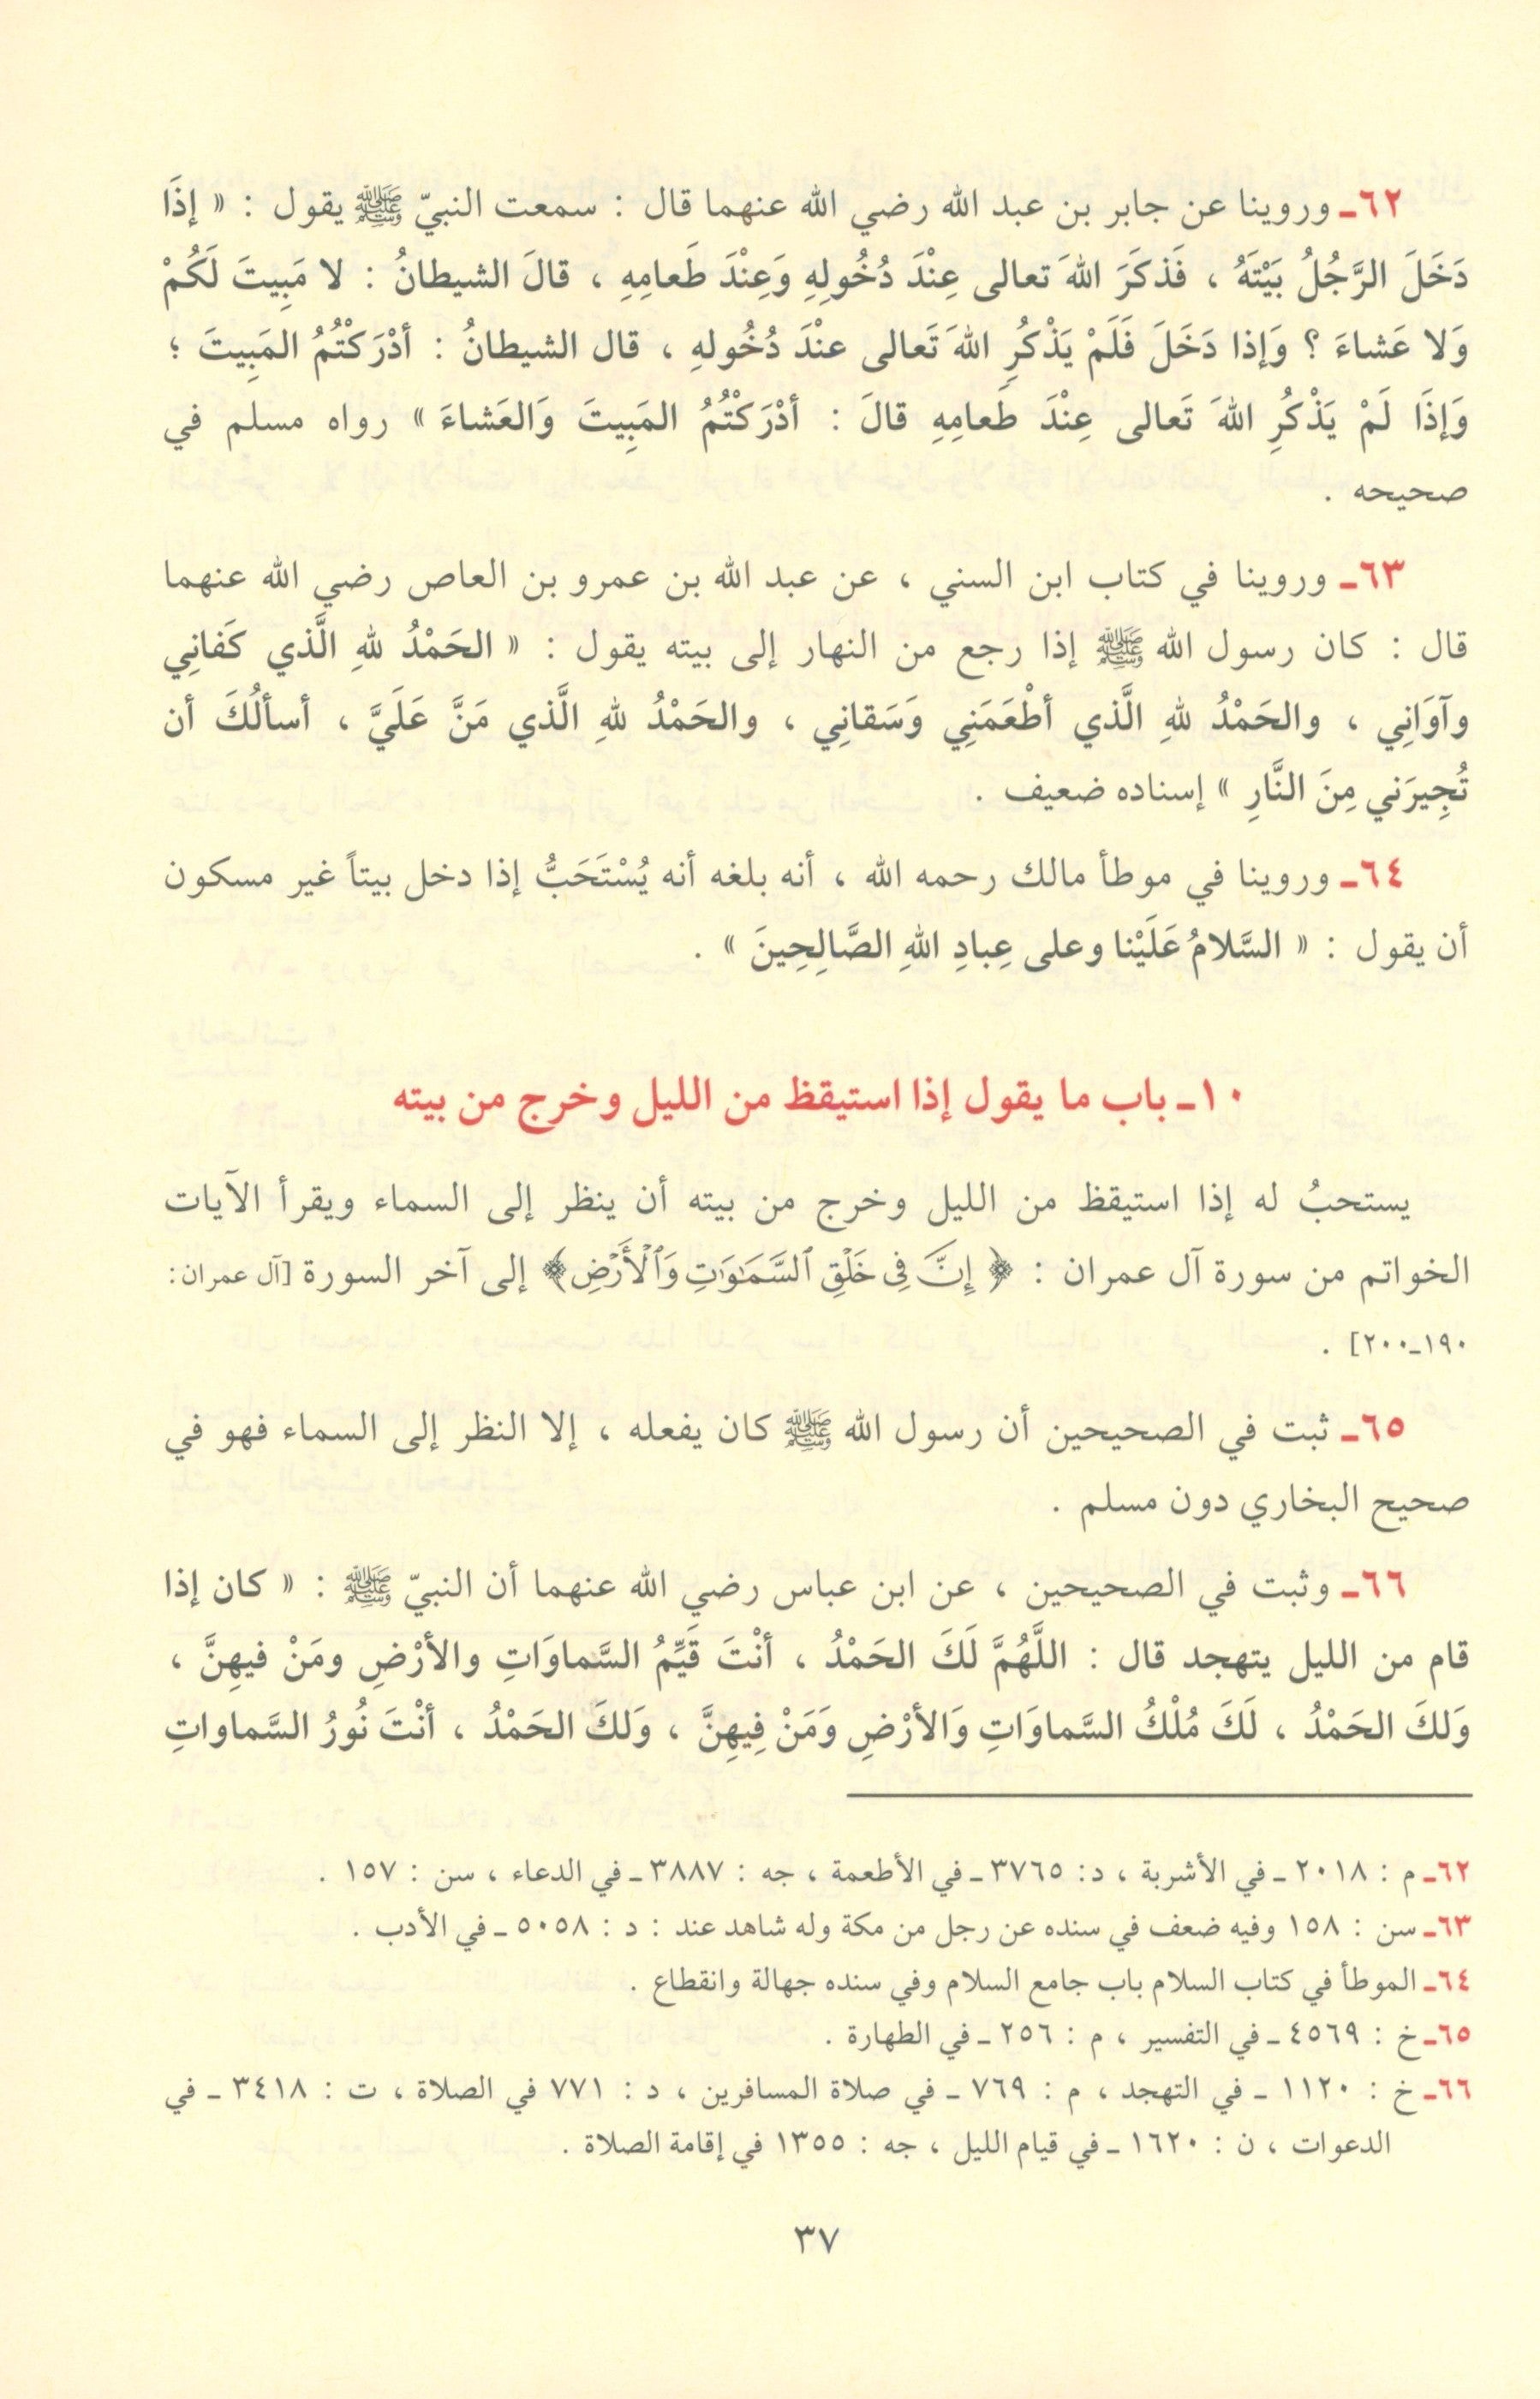 ٦٢ـ وروينا عن جابر بن عبد الله رضي الله عنهما قال : سمعت النبيّ ﷺ يقول : « إذَا
دَخَلَ الرَّجُلُ بَيْتَهُ ، فَذكَرَ اللهَ تعالى عِنْدَ دُخُولِهِ وَعِنْدَ طَعامِهِ ، قالَ الشيطانُ : لا مَبِيتَ لَكُمْ
وَلا عَشاءَ ؟ وَإذا دَخَلَ فَلَمْ يَذْكُرِ اللهَ تَعالى عنْدَ دُخُولهِ ، قال الشيطانُ : أدْرَكْتُمُ المَبِيتَ ؛
وَإذَا لَمْ يَذْكُرِ اللهَ تَعالى عِنْدَ طَعامِهِ قالَ : أدْرَكْتُمُ المَبِيتَ وَالعَشاءَ » رواه مسلم في
صحيحه .
٦٣ـ وروينا في كتاب ابن السني ، عن عبد الله بن عمرو بن العاص رضي الله عنهما
قال : كان رسول الله ﷺ إذا رجع من النهار إلى بيته يقول : « الحَمْدُ للهِ الَّذي كَفانِي
وآوَانِي ، والحَمْدُ للهِ الَّذي أطْعَمَنِي وَسَقانِي ، والحَمْدُ للهِ الَّذي مَنَّ عَلَيَّ ، أسألُكَ أن
تُجِيرَني مِنَ النَّارِ » إسناده ضعيف .
٦٤ـ وروينا في موطأ مالك رحمه الله ، أنه بلغه أنه يُسْتَحَبُّ إذا دخل بيتاً غير مسكون
أن يقول : « السَّلامُ عَلَيْنا وعلى عِبادِ اللهِ الصَّالِحِينَ » .
١٠ـ باب ما يقول إذا استيقظ من الليل وخرج من بيته
يستحبُ له إذا استيقظ من الليل وخرج من بيته أن ينظر إلى السماء ويقرأ الآيات
الخواتم من سورة آل عمران : ﴿ إِنَّ فِي خَلْقِ ٱلسَّمَٰوَٰتِ وَٱلْأَرْضِ﴾ إلى آخر السورة [آل عمران:
١٩٠ـ٢٠٠] .
٦٥ـ ثبت في الصحيحين أن رسول الله ﷺ كان يفعله ، إلا النظر إلى السماء فهو في
صحيح البخاري دون مسلم .
٦٦ـ وثبت في الصحيحين ، عن ابن عباس رضي الله عنهما أن النبيّ ﷺ : « كان إذا
قام من الليل يتهجد قال : اللَّهُمَّ لَكَ الحَمْدُ ، أنْتَ قَيِّمُ السَّماوَاتِ والأرْضِ ومَنْ فيهِنَّ ،
وَلكَ الحَمْدُ ، لَكَ مُلْكُ السَّماوَاتِ وَالأرْضِ وَمَنْ فِيهِنَّ ، وَلكَ الحَمْدُ ، أنْتَ نُورُ السَّماواتِ
٦٢ـ م : ٢٠١٨ ـ في الأشربة ، د: ٣٧٦٥ ـ في الأطعمة ، جه : ٣٨٨٧ ـ في الدعاء ، سن : ١٥٧ .
٦٣ـ سن : ١٥٨ وفيه ضعف في سنده عن رجل من مكة وله شاهد عند : د : ٥٠٥٨ ـ في الأدب .
٦٤ـ الموطأ في كتاب السلام باب جامع السلام وفي سنده جهالة وانقطاع .
٦٥ـ خ : ٤٥٦٩ ـ في التفسير ، م : ٢٥٦ ـ في الطهارة .
٦٦ـ خ : ١١٢٠ ـ في التهجد ، م : ٧٦٩ ـ في صلاة المسافرين ، د : ٧٧١ في الصلاة ، ت : ٣٤١٨ ـ في
الدعوات ، ن : ١٦٢٠ ـ في قيام الليل ، جه : ١٣٥٥ في إقامة الصلاة .
٣٧